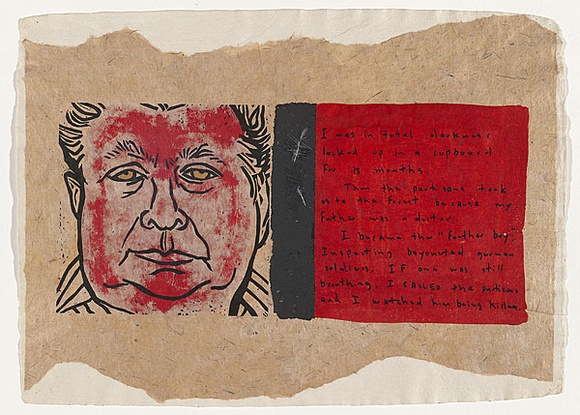 I was in total darkness
locked up in a cupboard
for 18 months
Then the partisans took
us to the forest because my
father was a doctor.
I became the "further boy
Inspecting bayoneted german
soldiers. IF one was still
breathing. I called the partisans
and I watched him being killed.